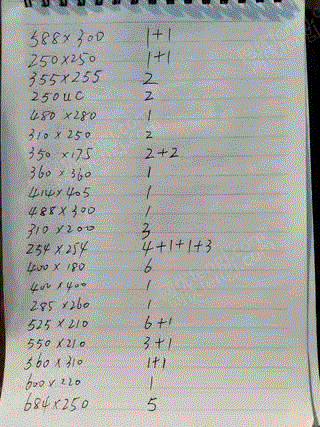 388×300 1+1
250×250 1+1
355×255 2
250UC 2
480×280 1
310×250 2
350×175 2+2
360×360 1
414×405 1
488×300 1
310×200 3
254×254 4+1+1+3
400×180 6
400×400 1
285×260 1
525×210 6+1
550×210 3+1
360×310 1+1
600×220 1
684×250 5